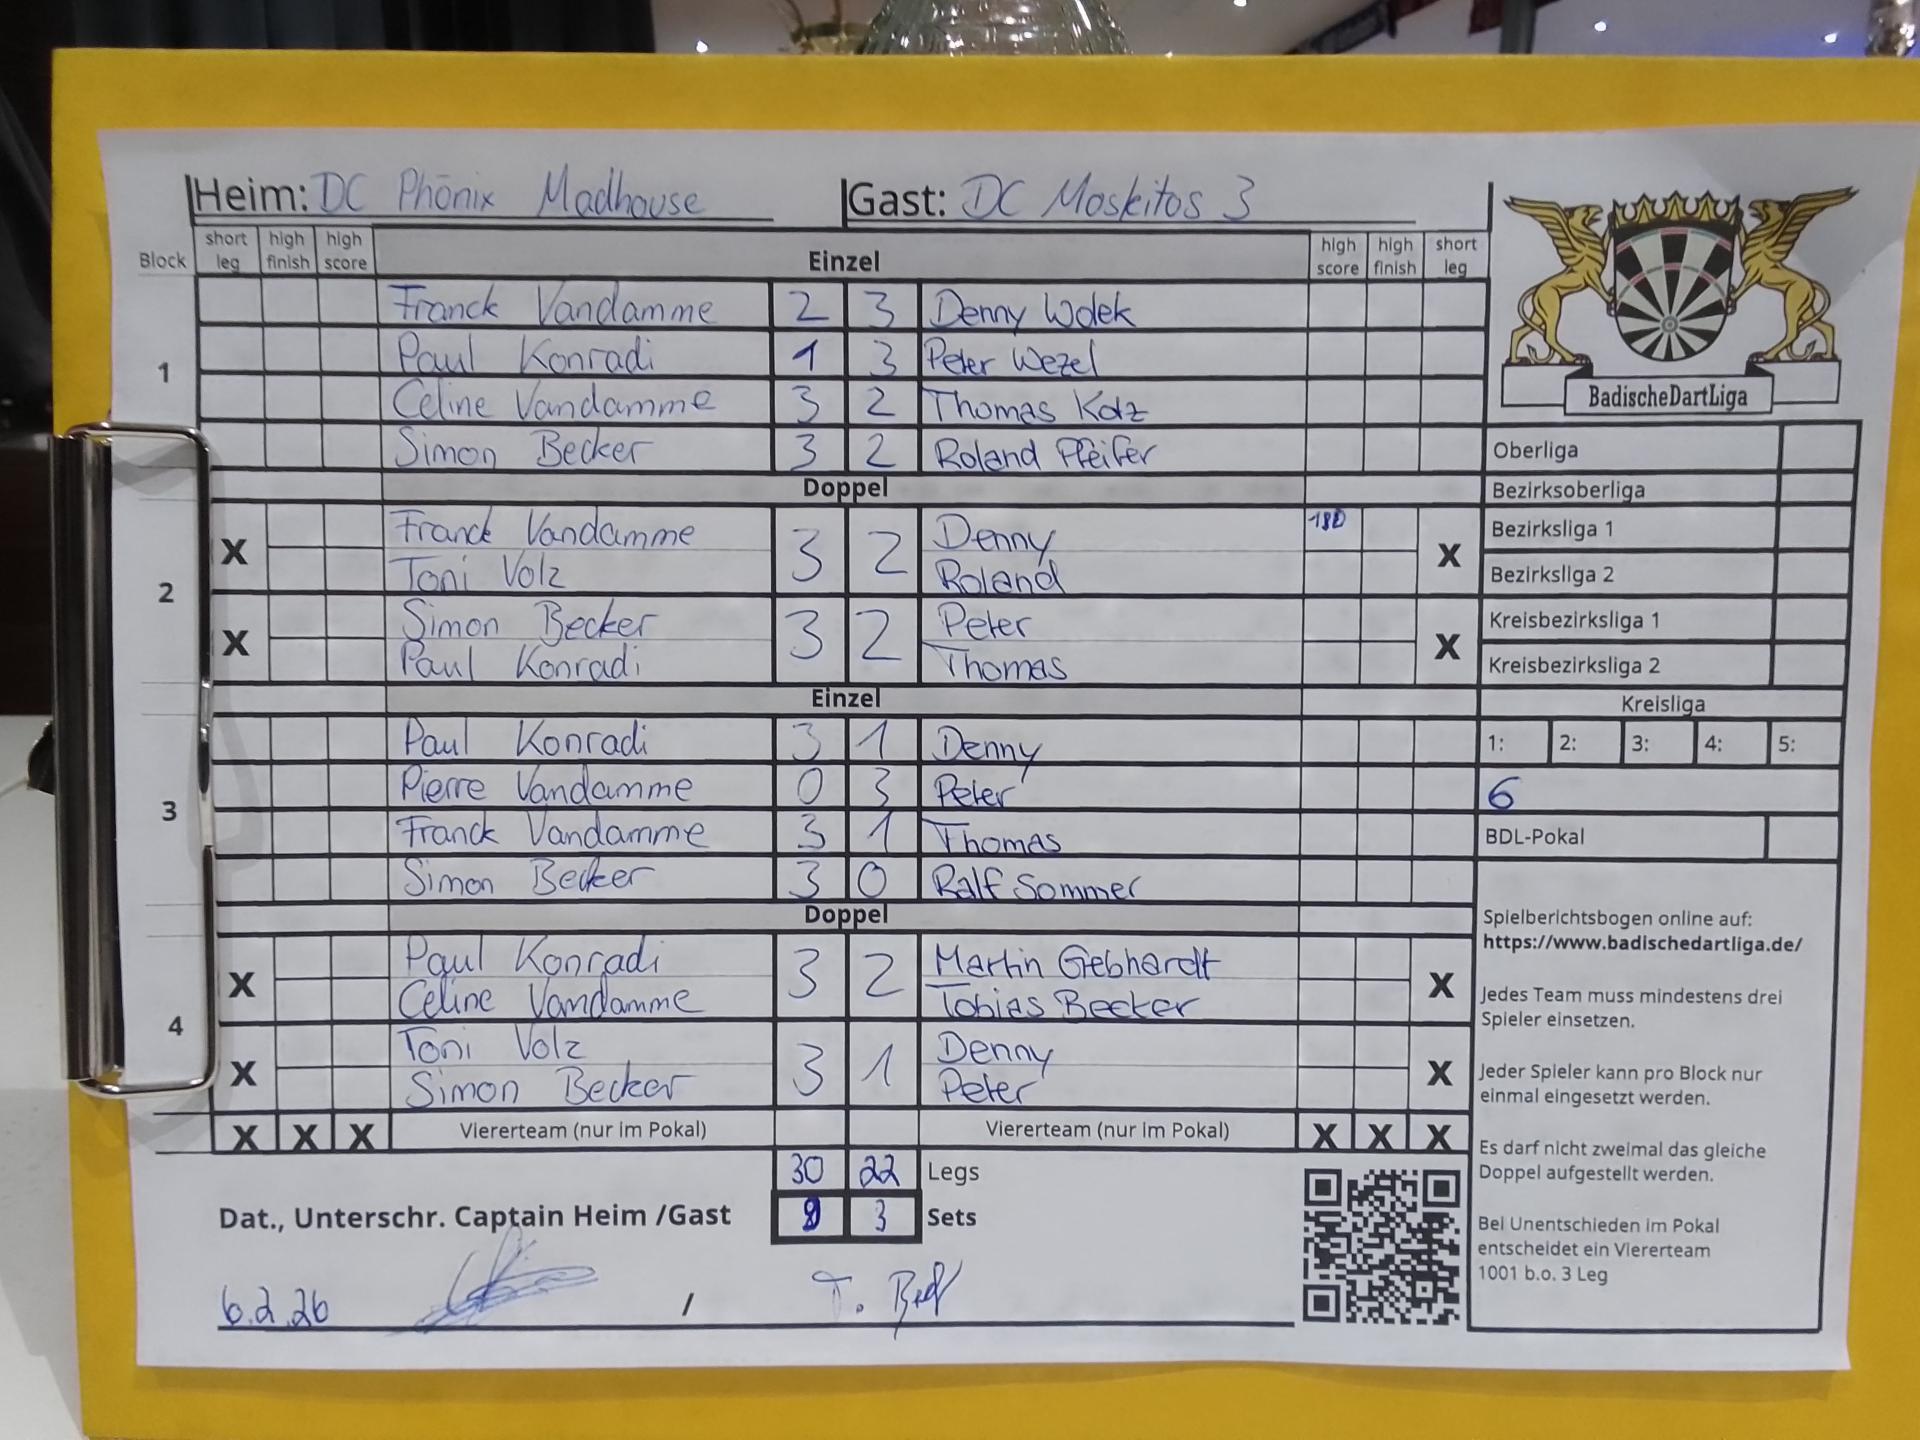 Heim: DC Phönix Madhouse Gast: DC Moskitos 3
Block short leg high finish high score Einzel high score high finish short leg
1
Franck Vandamme 2 3 Denny Wolek
Paul Konradi 1 3 Peter Wezel
Celine Vandamme 3 2 Thomas Kolz
Simon Becker 3 2 Roland Pfeifer
Doppel
2
X Franck Vandamme 3 2 Denny 180 X
Toni Volz Roland
X Simon Becker 3 2 Peter X
Paul Konradi Thomas
Einzel
3
Paul Konradi 3 1 Denny
Pierre Vandamme 0 3 Peter
Franck Vandamme 3 1 Thomas
Simon Becker 3 0 Ralf Sommer
Doppel
4
X Paul Konradi 3 2 Martin Gebhardt X
Celine Vandamme Tobias Becker
X Toni Volz 3 1 Denny X
Simon Becker Peter
X X X Viererteam (nur im Pokal) Viererteam (nur im Pokal) X X X
30 22 Legs
Dat., Unterschr. Captain Heim /Gast 9 3 Sets
6.2.26 /
BadischeDartLiga
Oberliga
Bezirksoberliga
Bezirksliga 1
Bezirksliga 2
Kreisbezirksliga 1
Kreisbezirksliga 2
Kreisliga
1: 2: 3: 4: 5:
6
BDL-Pokal
Spielberichtsbogen online auf:
https://www.badischedartliga.de/
Jedes Team muss mindestens drei
Spieler einsetzen.
Jeder Spieler kann pro Block nur
einmal eingesetzt werden.
Es darf nicht zweimal das gleiche
Doppel aufgestellt werden.
Bei Unentschieden im Pokal
entscheidet ein Viererteam
1001 b.o. 3 Leg